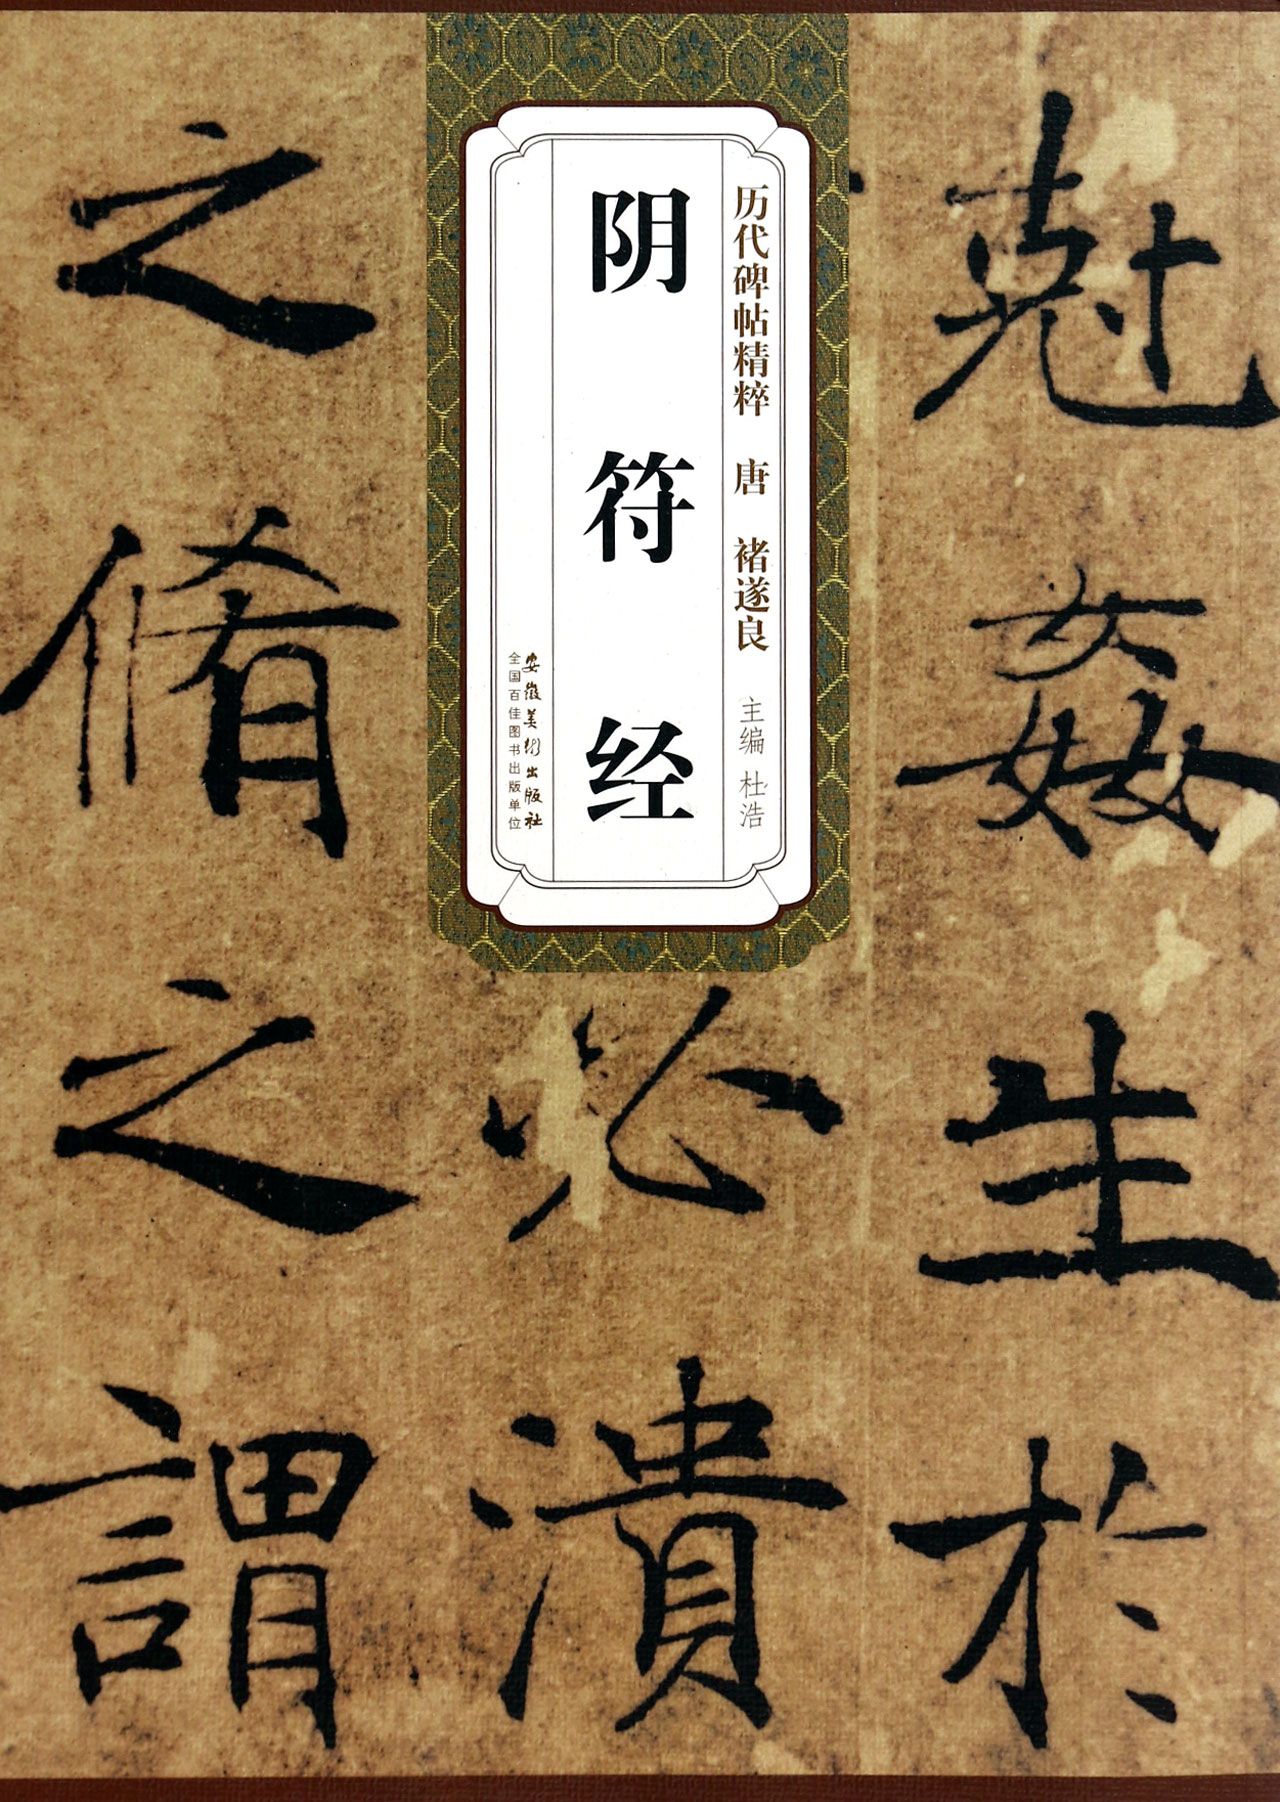 尅姦生於
历代碑帖精粹 唐 褚遂良 主编 杜浩
阴符经
安徽美术出版社
全国百佳图书出版单位
必潰
之脩之謂